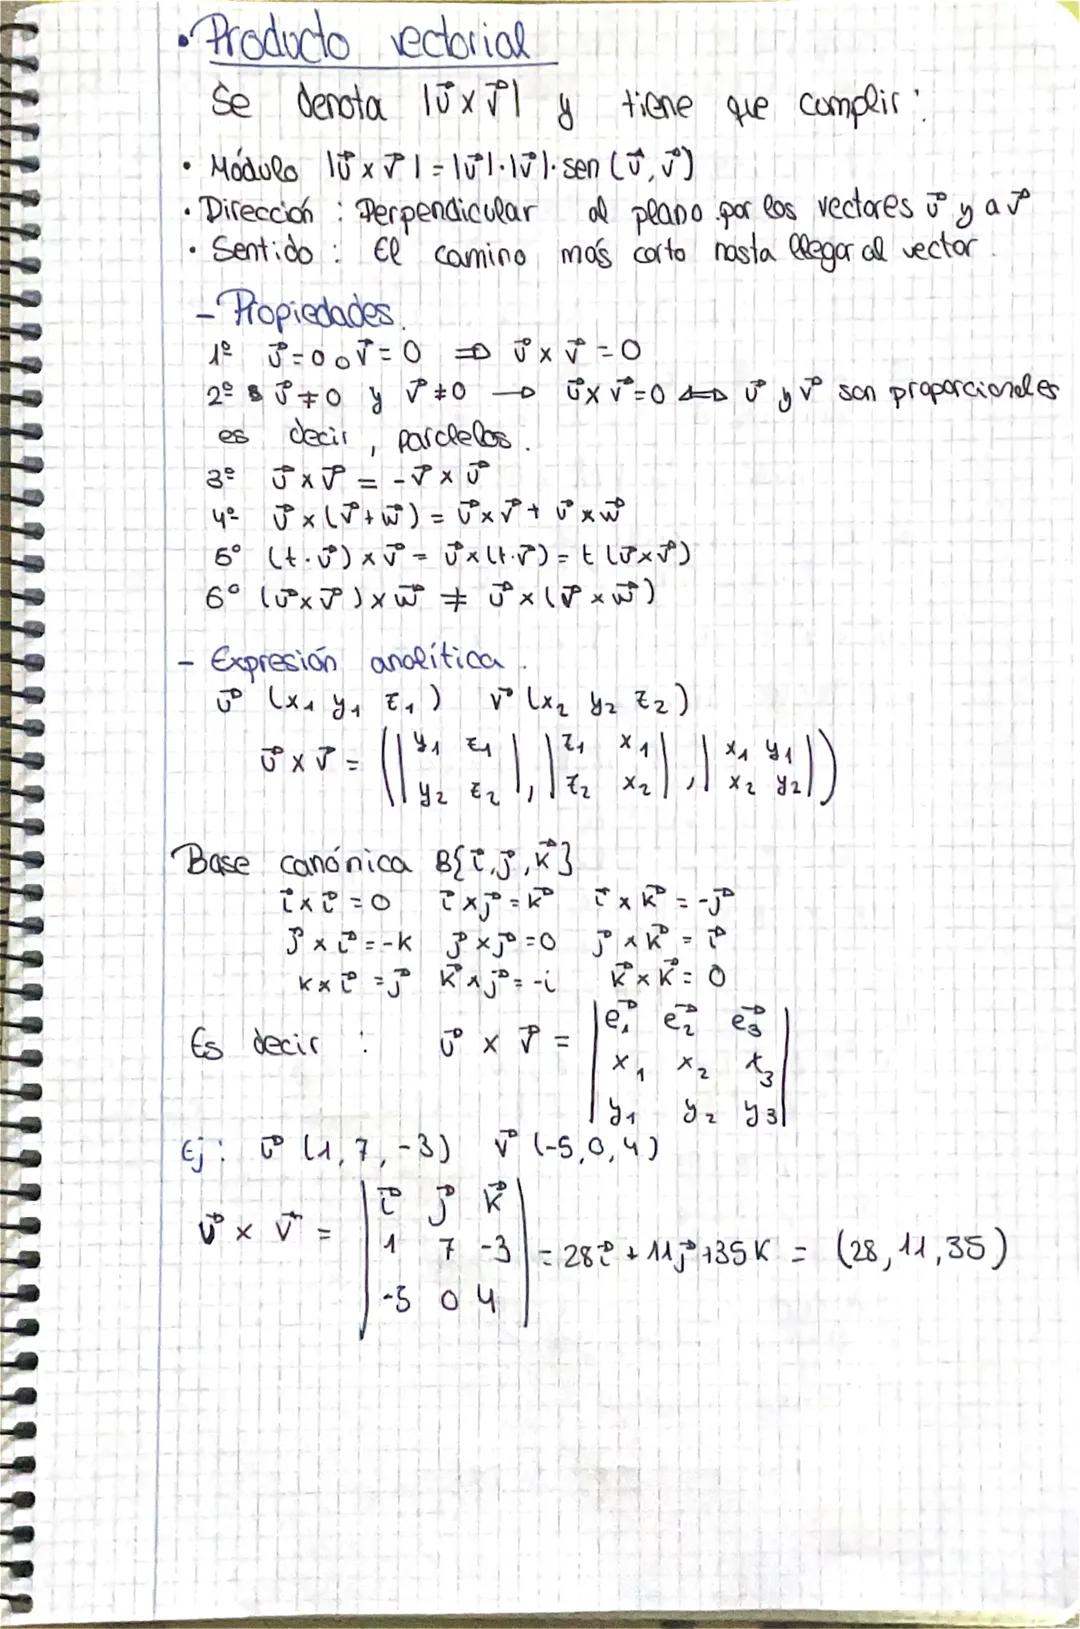 • Producto vectorial
Se denota |u⃗ x v⃗| y tiene que cumplir:
• Módulo |u⃗ x v⃗| = |u⃗|·|v⃗|· sen (u⃗, v⃗)
• Dirección : Perpendicular al plano por los vectores u⃗ y a v⃗
• Sentido : El camino más corto hasta llegar al vector.
- Propiedades.
1º u⃗ = 0 o v⃗ = 0 ⇒ u⃗ x v⃗ = 0
2º u⃗ ≠ 0 y v⃗ ≠ 0 → u⃗ x v⃗ = 0 ⇔ u⃗ y v⃗ son proporcionales
es decir, paralelos.
3º u⃗ x v⃗ = -v⃗ x u⃗
4º u⃗ x (v⃗ + w⃗) = u⃗ x v⃗ + u⃗ x w⃗
5º (t · u⃗) x v⃗ = u⃗ x (t · v⃗) = t (u⃗ x v⃗)
6º (u⃗ x v⃗) x w⃗ ≠ u⃗ x (v⃗ x w⃗)
- Expresión analítica.
u⃗ (x₁ y₁ z₁) v⃗ (x₂ y₂ z₂)
u⃗ x v⃗ = (| y₁ z₁ |, | z₁ x₁ |, | x₁ y₁ |)
| y₂ z₂ | | z₂ x₂ | | x₂ y₂ |
Base canónica B{i⃗, j⃗, k⃗}
i⃗ x i⃗ = 0 i⃗ x j⃗ = k⃗ i⃗ x k⃗ = -j⃗
j⃗ x i⃗ = -k j⃗ x j⃗ = 0 j⃗ x k⃗ = i⃗
k x i⃗ = j⃗ k⃗ x j⃗ = -i k⃗ x k⃗ = 0
Es decir : u⃗ x v⃗ = | e₁⃗ e₂⃗ e₃⃗ |
| x₁ x₂ x₃ |
| y₁ y₂ y₃ |
Ej: u⃗ (1, 7, -3) v⃗ (-5, 0, 4)
| i⃗ j⃗ k⃗ |
u⃗ x v⃗ = | 1 7 -3 | = 28i⃗ + 11j⃗ + 35K = (28, 11, 35)
| -5 0 4 |